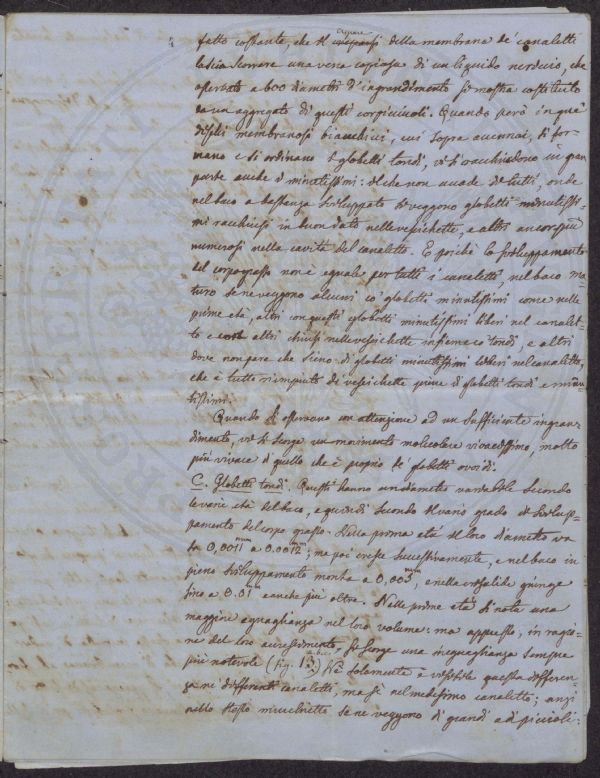 fatto costante, che il crepare
crepaccj della membrana de' canaletti
lascia scorrere una vera copiosa di un liquido nerdiccio, che
osservato a 600 diametri d'ingrandimento si mostra costituito
da un aggregato di questi corpicciuoli. Quando però in que'
dischi membranosi bianchicci, cui sopra accennai, si for-
mano e si ordinano i globetti tondi, vi si racchiudono in gran
parte anche i minutissimi: il che non accade di tutti, onde
nel baco a bastanza sviluppato si veggono globetti minutissi-
mi racchiusi in buon dato nelle vescichette, e altri ancor più
numerosi nella cavità del canaletto. E poichè lo sviluppamento
del corpo grasso non è eguale per tutti i canaletti, nel baco ma-
turo se ne veggono alcuni co' globetti minutissimi come nelle
prime età, altri con questi globetti minutissimi liberi nel canalet-
to e altri chiusi nelle vescichette insieme co' tondi, e altri
dove non pare che sieno di globetti minutissimi liberi nel canaletto,
che è tutto riempiuto di vescichette piene di globetti tondi e minu-
tissimi.
Quando si osservano con attenzione ad un sufficiente ingran-
dimento, vi si scorge un movimento molecolare vivacissimo, molto
più vivace di quello che è proprio de' globetti ovoidi.
C. Globetti tondi. Questi hanno un diametro variabile secondo
le varie età del baco, e quindi secondo il vario grado di svilup-
pamento del corpo grasso. Nella prima età il loro diametro va
da 0,0011 a 0.0012mm; ma poi cresce successivamente, e nel baco in
pieno sviluppamento monta a 0,005mm, e nella crisalide giunge
fino a 0.01mm e anche più oltre. Nelle prime età si nota una
maggiore agguaglianza nel loro volume: ma appresso, in ragio-
ne del loro accrescimento, si scorge una ineguaglianza sempre
più notevole (fig. 13 a. b. c.) Nè solamente è visibile questa differen-
za ne' differenti canaletti, ma sì nel medesimo canaletto; anzi
nello stesso mucchietto se ne veggono di grandi e di piccoli: